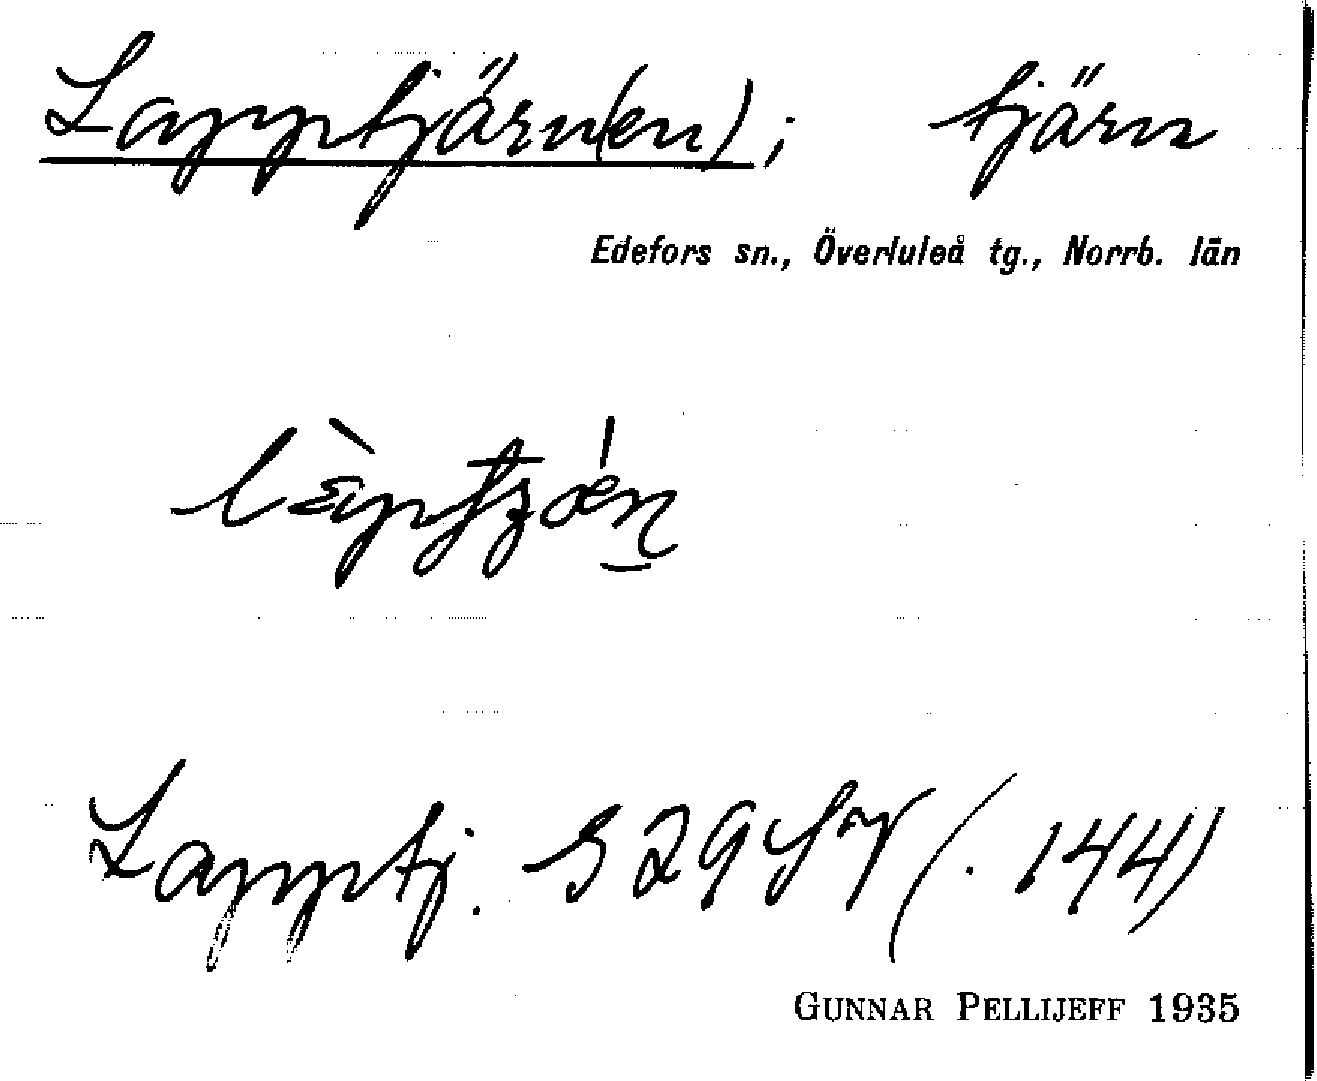 Lapptjärn(en); tjärn
Edefors sn., Överluleå tg., Norrb. län
Lapptj. S 29 f v (. 144)
GUNNAR PELLIJEFF 1935